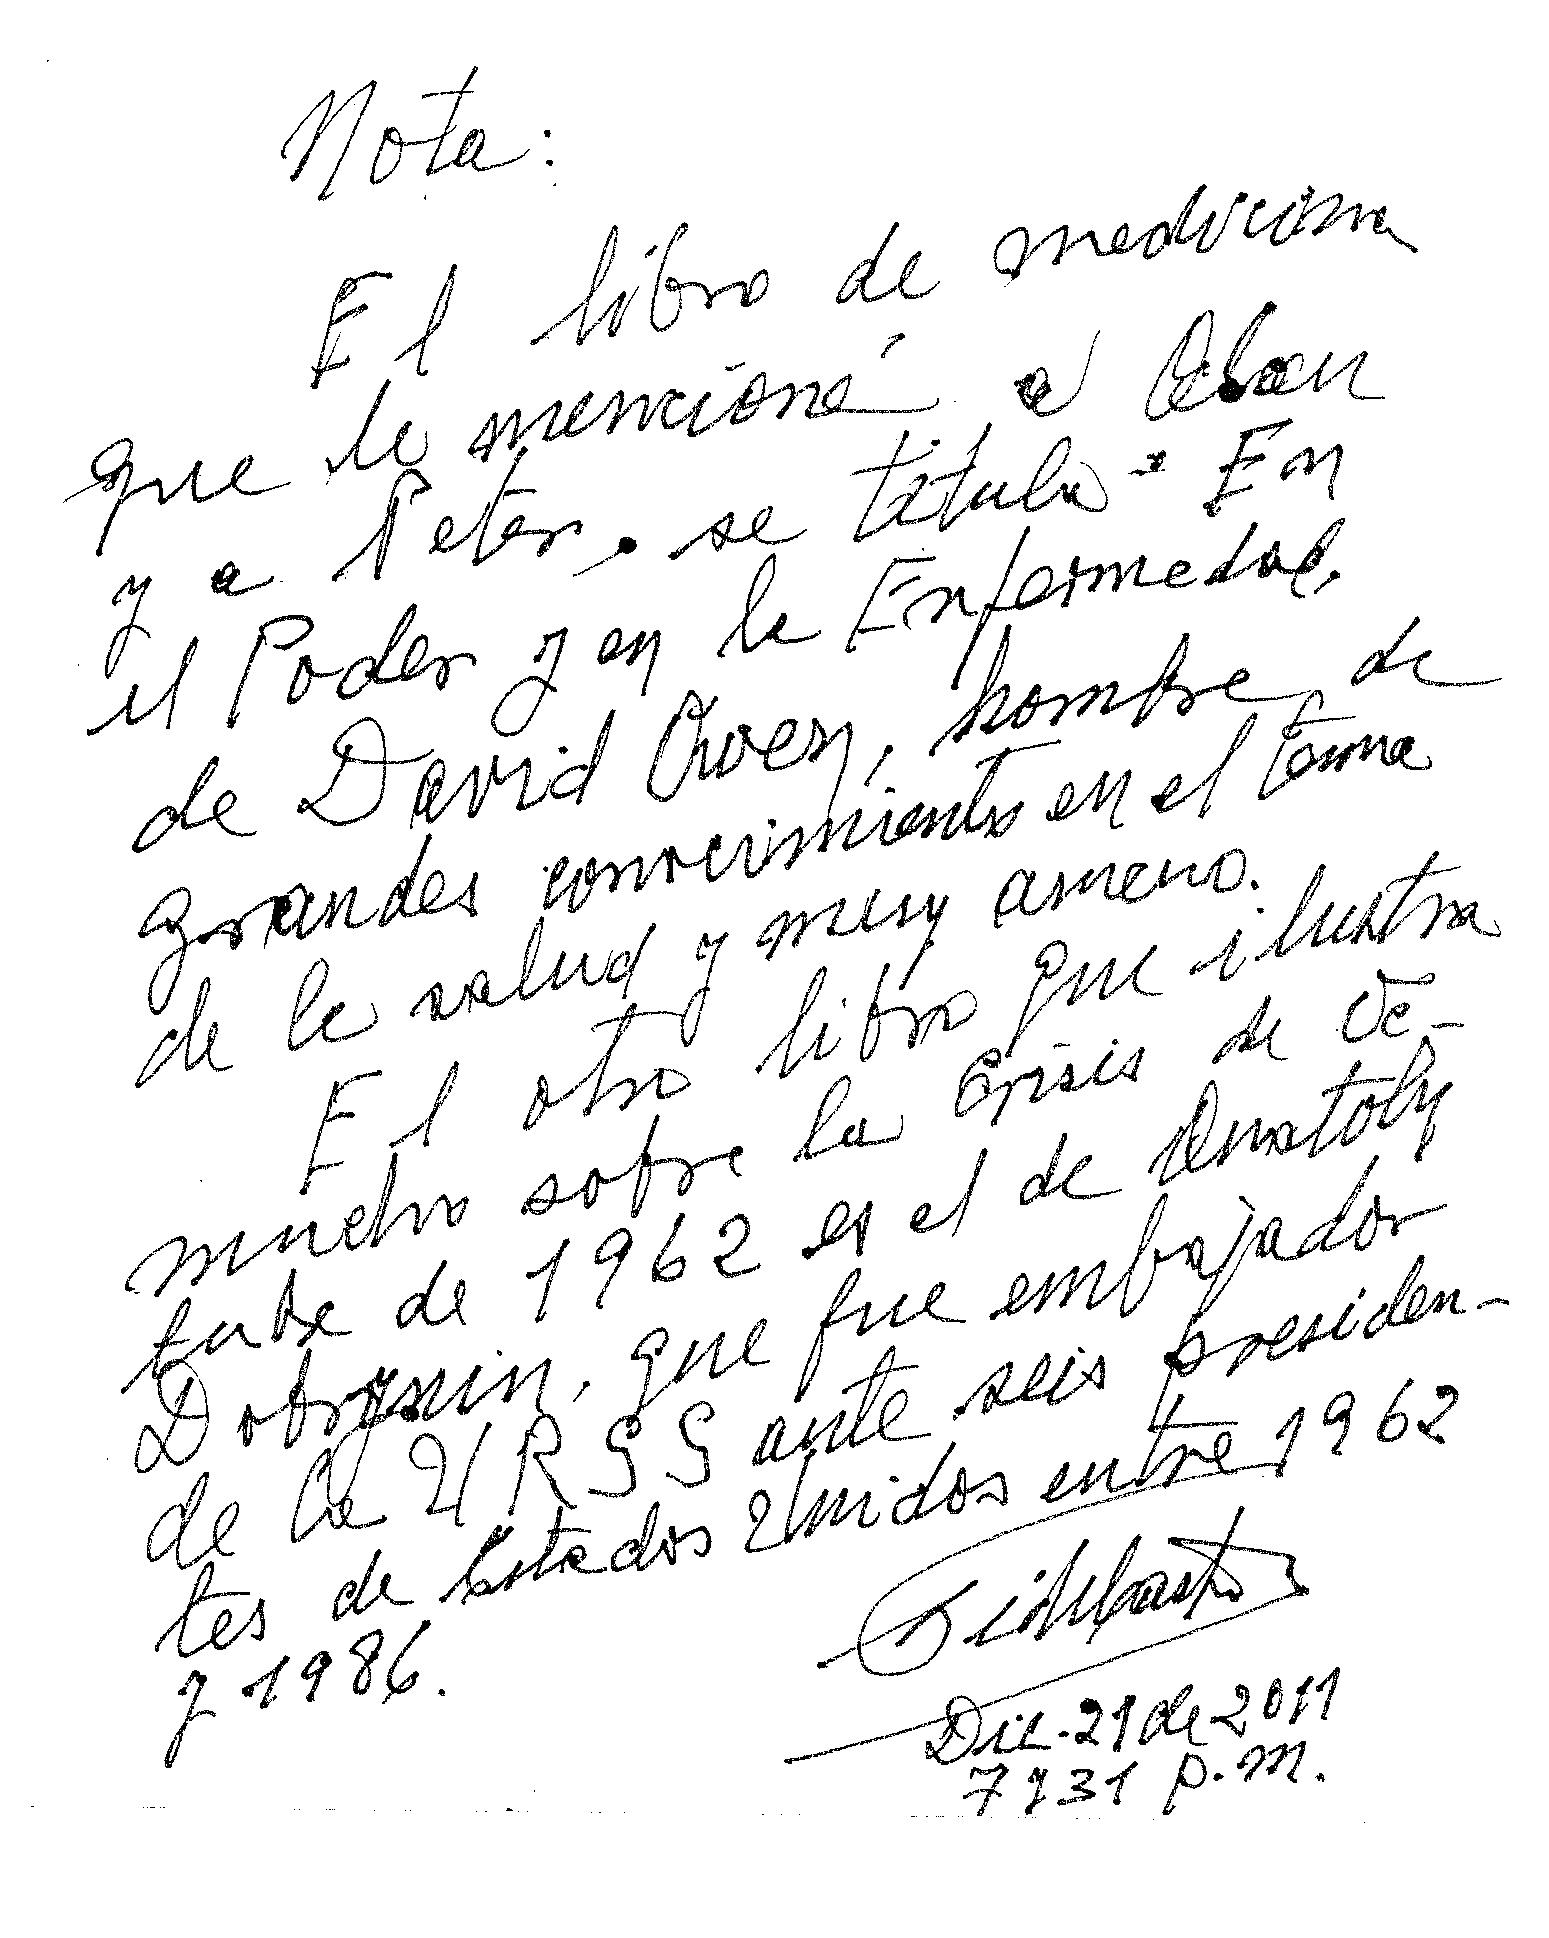 Nota:
El libro de medicina
que le mencioné a Alan
y a Peter, se titula "En
el Poder y en la Enfermedad,
de David Owen, hombre de
grandes conocimientos en el tema
de la salud y muy ameno.
El otro libro que ilustra
mucho sobre la Crisis de Oc-
tubre de 1962 es el de Anatoly
Dobrynin, que fue embajador
de la URSS ante seis presiden-
tes de Estados Unidos entre 1962
y 1986.
Fidel Castro
Dic. 21 de 2011
7 y 31 p.m.